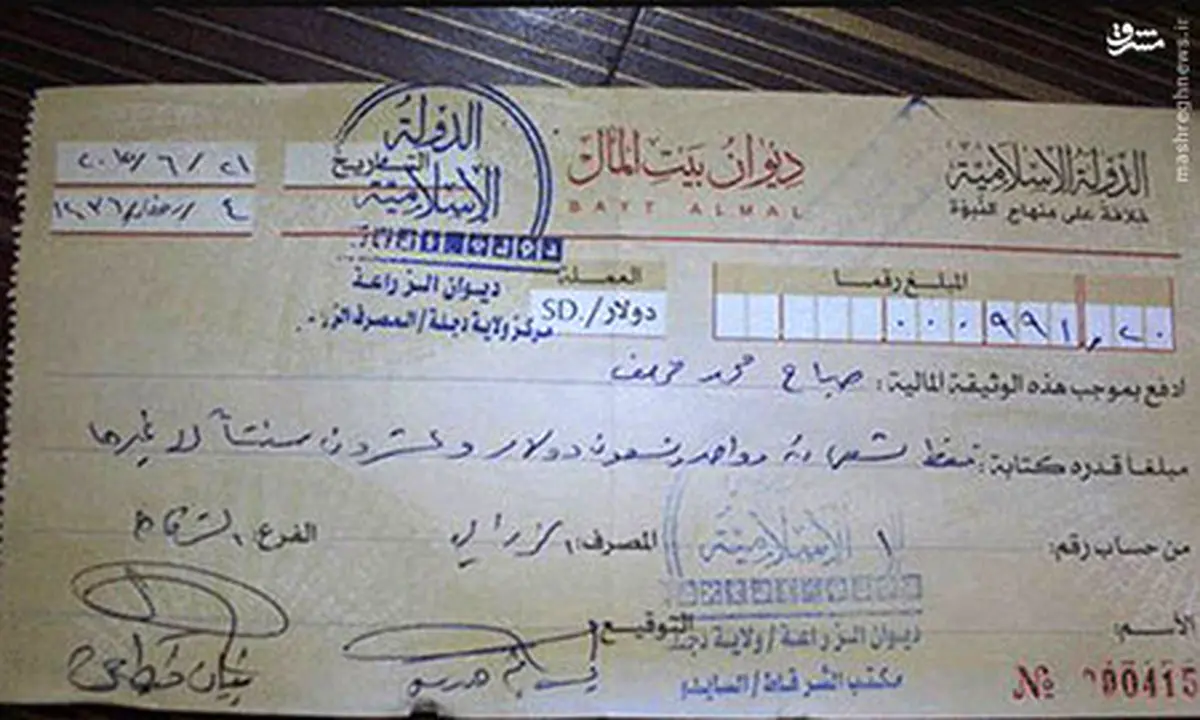 مشرق
mashreghnews.ir
الدولة الإسلامية
خلافة على منهاج النبوة
ديوان بيت المال
BAYT ALMAL
الدولة الإسلامية
التاريخ
٢١ / ٦ /
٤ / رمضان / ١٤٣٦
ديوان الزراعة
مركز ولاية دجلة / المصرف
المبلغ رقما
العملة
٠٠٠ ٩٩١,٢٠
دولار /.SD
ادفع بموجب هذه الوثيقة المالية: صباح محمد خلف
مبلغا قدره كتابة: فقط تسعمائة وواحد وتسعون دولار وعشرون سنتاً لا غيرها
من حساب رقم: ١
المصرف:
الفرع: الشرقاط
الإسلامية
الأسم:
التوقيع
ديوان الزراعة / ولاية دجلة
مكتب الشرقاط / السايلو
№ 000415